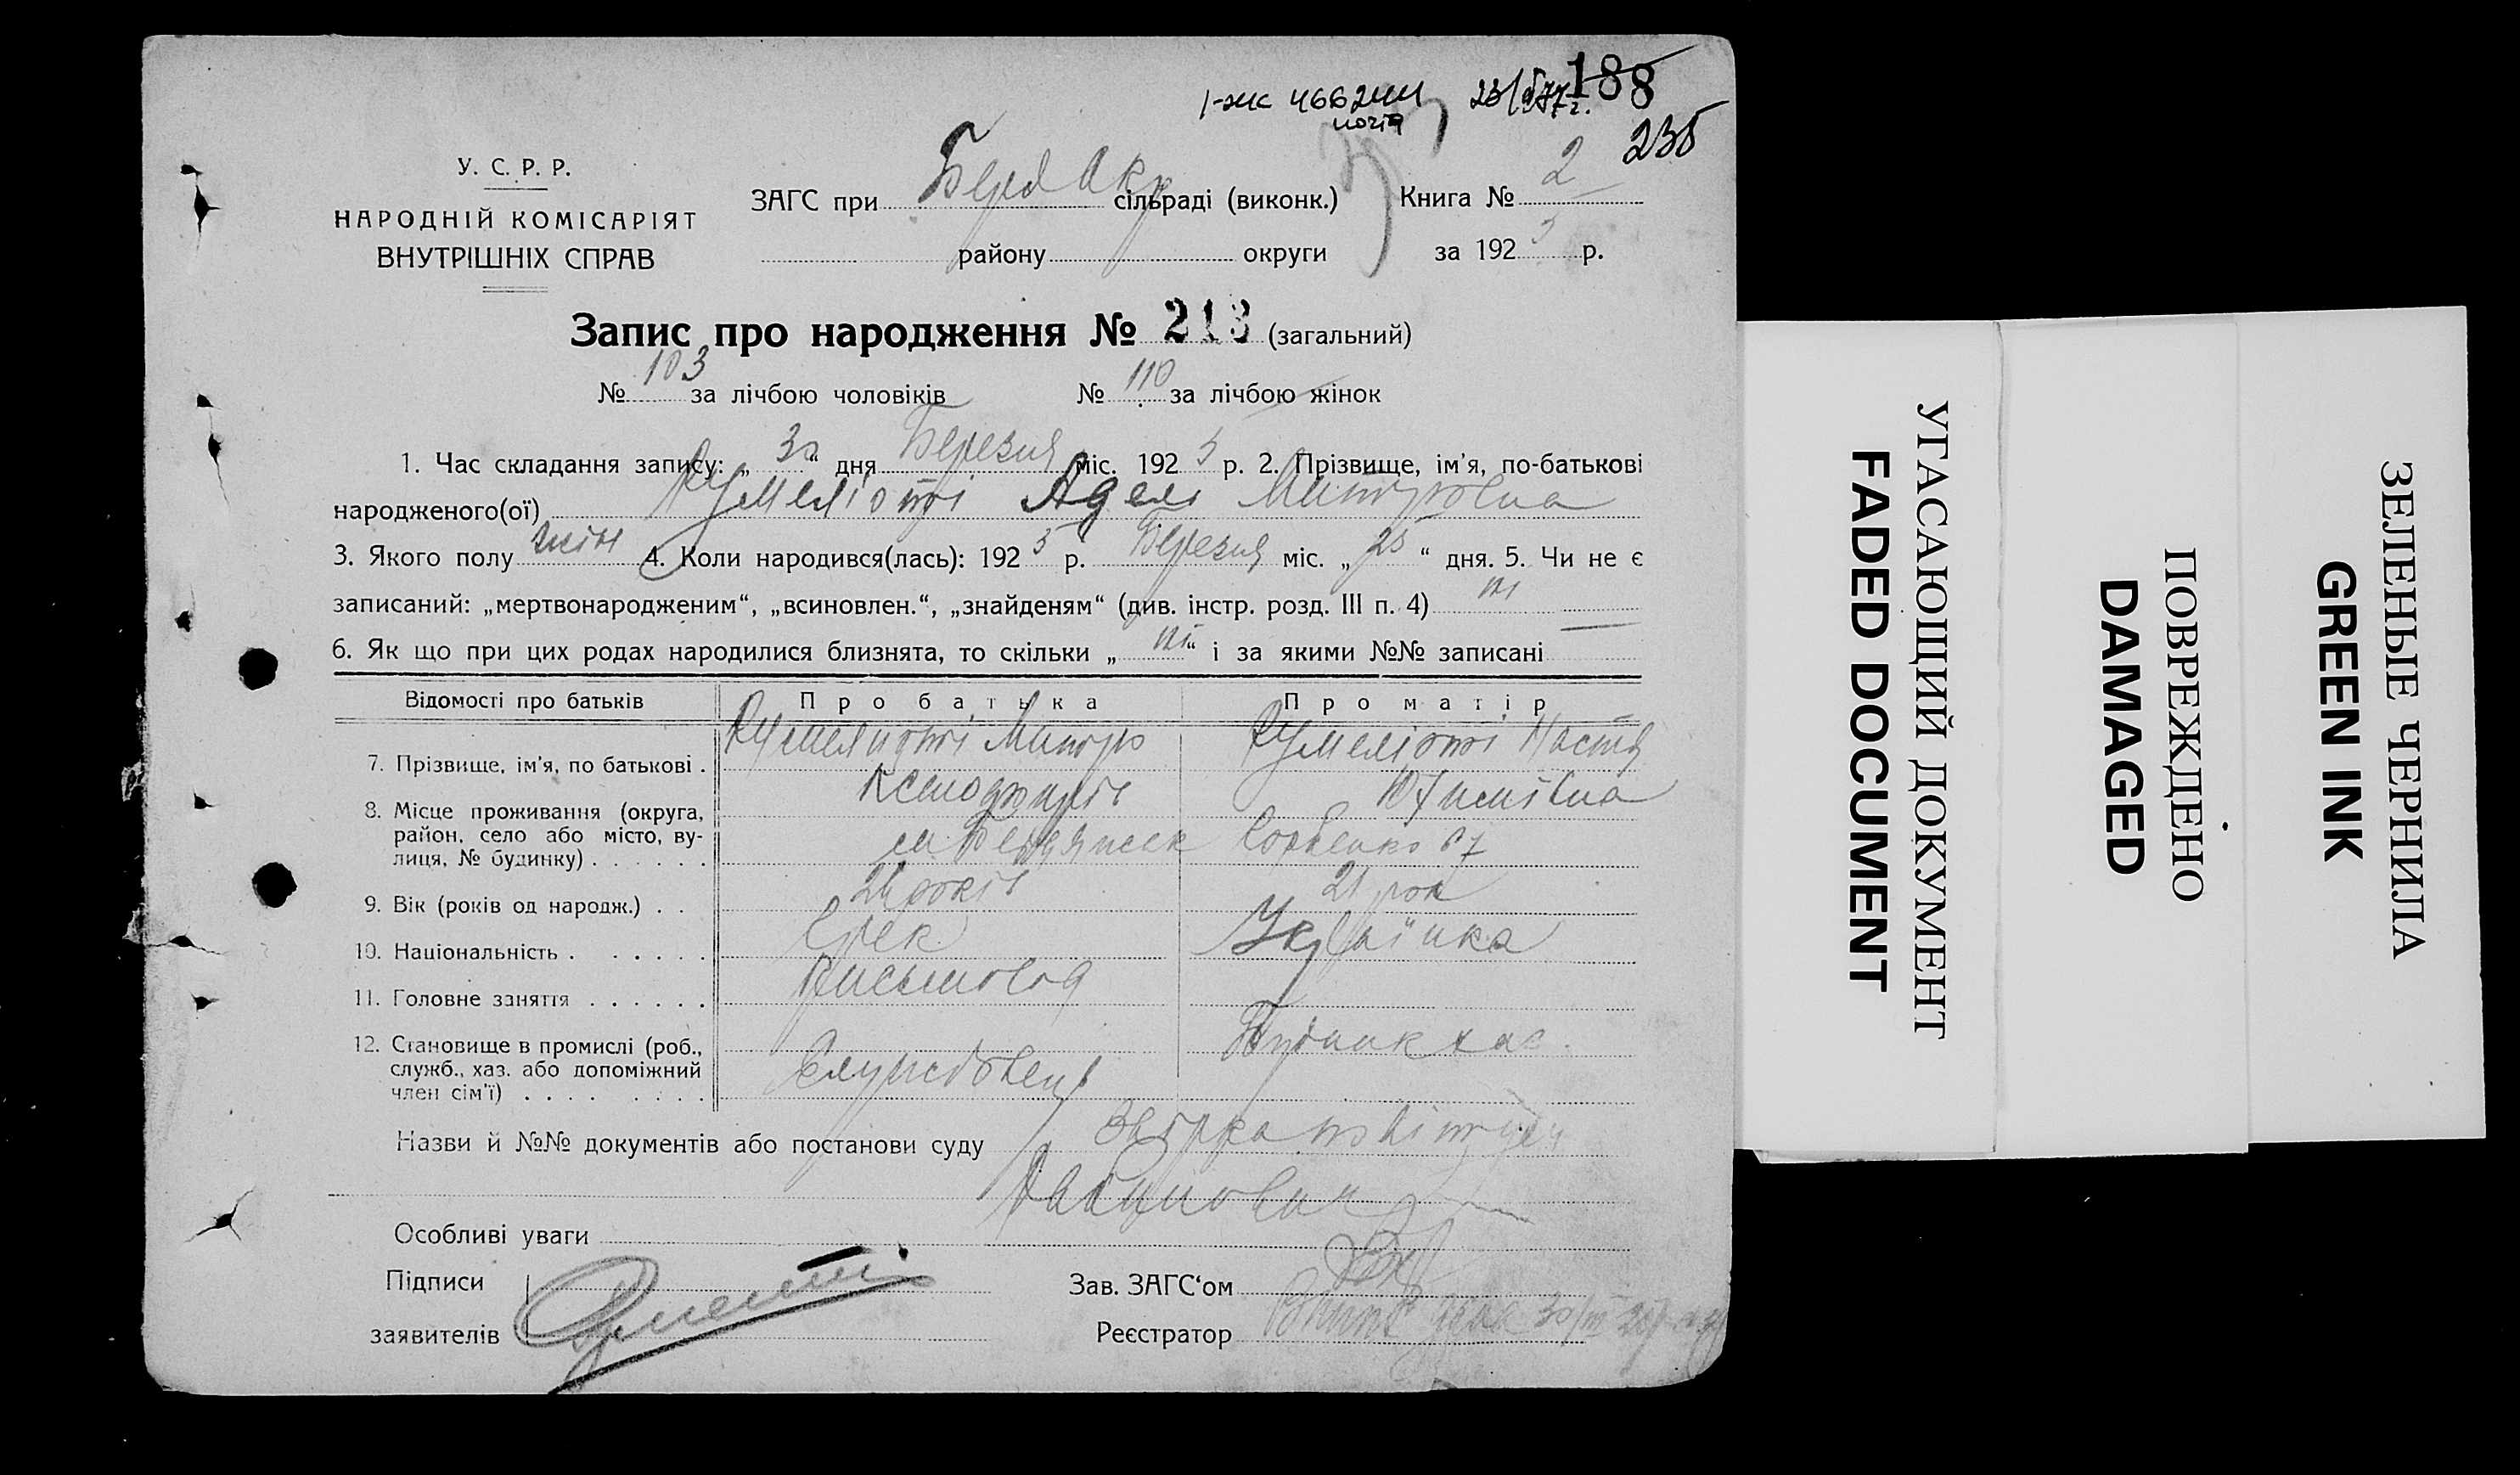 188
1-жс 466244
235
У. С. Р. Р.
НАРОДНІЙ КОМІСАРІЯТ
ВНУТРІШНІХ СПРАВ
ЗАГС при Берд окр сільраді (виконк.) Книга № 2
району округи за 1925 р.
Запис про народження № 213 (загальний)
№ 103 за лічбою чоловіків № 110 за лічбою жінок
1. Час складання запису: „30“ дня Березня міс. 1925 р. 2. Прізвище, ім’я, по-батькові
народженого(ої) Румеліоті Адель
3. Якого полу жін 4. Коли народився(лась): 1925 р. Березня міс. „25“ дня. 5. Чи не є
записаний: „мертвонародженим“, „всиновлен.“, „знайденям“ (див. інстр. розд. III п. 4) ні
6. Як що при цих родах народилися близнята, то скільки „ні“ і за якими №№ записані
Відомості про батьків Про батька Про матір
7. Прізвище, ім’я, по батькові . Румеліоті Румеліоті Настя
8. Місце проживання (округа,
район, село або місто, ву-
лиця, № будинку) . . . . . . м Бердянськ 67
9. Вік (років од народж.) . . 24 років 21 рок
10. Національність . . . . . . Грек Українка
11. Головне заняття . . . . . . Письмовод
12. Становище в промислі (роб.,
служб., хаз. або допоміжний
член сім’ї) . . . . . . . . Службовець
Назви й №№ документів або постанови суду
Особливі уваги
Підписи
заявителів
Зав. ЗАГС‘ом
Реєстратор
УГАСАЮЩИЙ ДОКУМЕНТ
FADED DOCUMENT
ПОВРЕЖДЕНО
DAMAGED
ЗЕЛЕНЫЕ ЧЕРНИЛА
GREEN INK